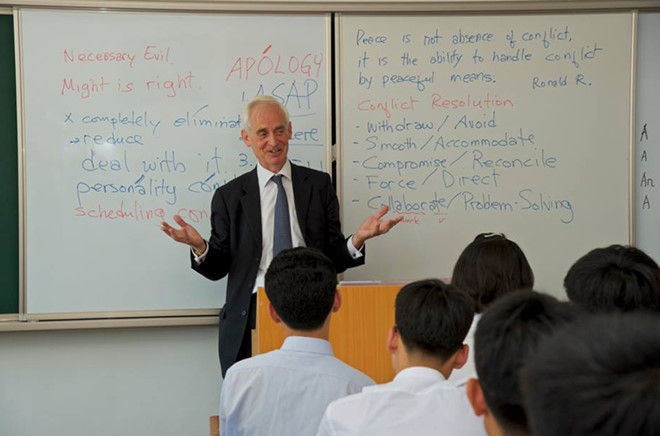 Necessary Evil
Might is right
APÓLOGY
ASAP
x completely eliminat
→reduce
deal with it 3.
personality con
scheduling con
Peace is not absence of conflict,
it is the ability to handle conflict
by peaceful means.
Ronald R.
Conflict Resolution
- Withdraw / Avoid
- Smooth / Accommodate
- Compromise / Reconcile
- Force / Direct
- Collaborate / Problem-Solving
A
A
An
A